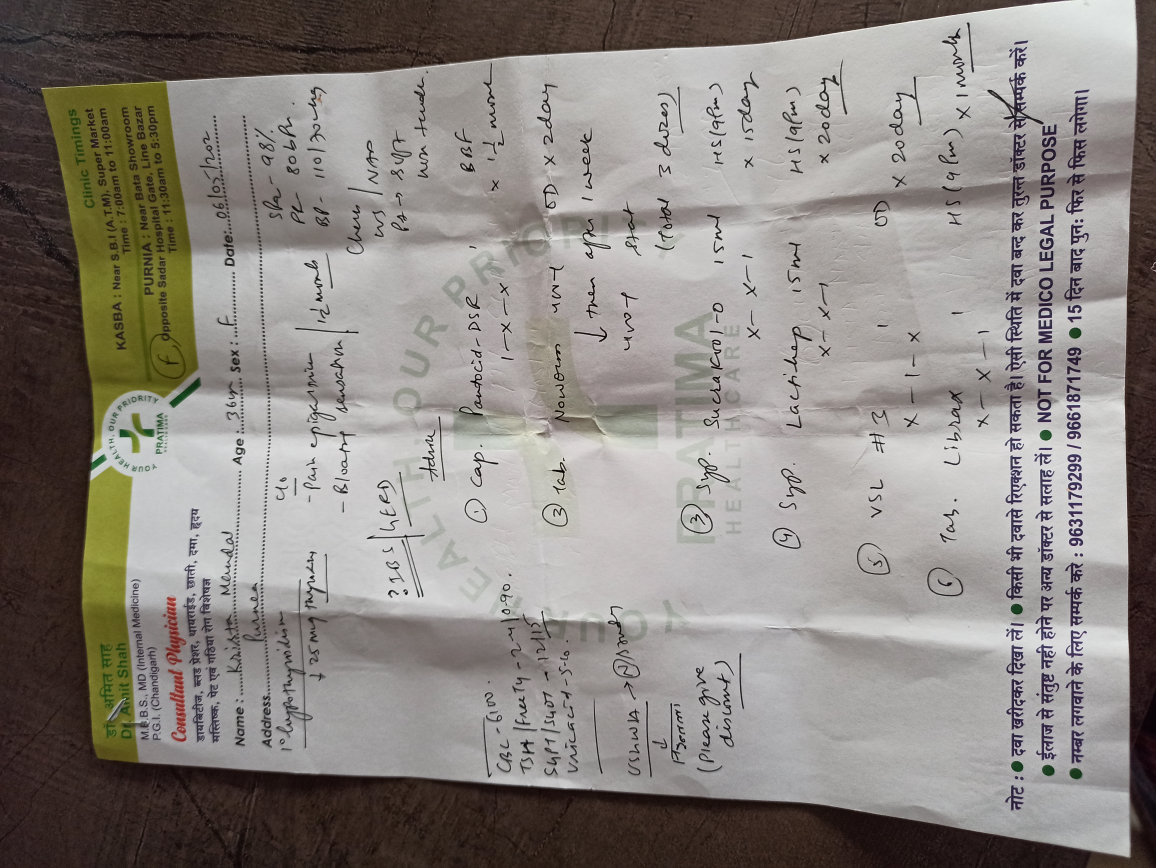 डॉ. अमित साह
Dr. Amit Shah
M.B.B.S., MD (Internal Medicine)
P.G.I. (Chandigarh)
Consultant Physician
डायबिटीज, ब्लड प्रेशर, थायराईड, छाती, दमा, हृदय
मस्तिष्क, पेट एवं गठिया रोग विशेषज्ञ
YOUR HEALTH, OUR PRIORITY
PRATIMA
Clinic Timings
KASBA : Near S.B.I (A.T.M), Super Market
Time : 7:00am to 11:00am
PURNIA : Near Bata Showroom
Opposite Sadar Hospital Gate, Line Bazar
Time : 11:30am to 5:30pm
F
Name : Age 36yr Sex : F Date: 06/05/202
Address Purnea
1° hypothyroidism
25 mcg
C/o
- Pain epigastrium
- Bloating sensation
SPO2 - 98%
PR - 80 bPm
BP - 110/70 mmHg
Chest / NAD
P/A → Soft
Non tender
? IBS / GERD
Advice
① Cap. Pantocid-DSR 1 BBF
1-x-x x 1½ month
② Tab. Noworm OD x 2day
↓ then after 1 week
stat
(Total 3 doses)
③ Syp. Sucrakool-O 15ml HS (9Pm)
x-x-1 x 15day
④ Syp. Lactihep 15ml HS (9Pm)
x-x-1 x 20day
⑤ VSL #3 1 OD
x-1-x x 20day
⑥ Tab. Librax 1 HS (9Pm) x 1 month
x-x-1
CBC - 6100.
SGPT/SGOT - 12/15
Uric acid - 5.0
(Please give discount)
YOUR HEALTH OUR PRIORITY
PRATIMA
HEALTH CARE
नोट : ● दवा खरीदकर दिखा लें। ● किसी भी दवासे रिएक्शन हो सकता है। ऐसी स्थिति में दवा बन्द कर तुरन्त डॉक्टर से सम्पर्क करें।
● ईलाज से संतुष्ट नही होने पर अन्य डॉक्टर से सलाह लें। ● NOT FOR MEDICO LEGAL PURPOSE
● नम्बर लगवाने के लिए सम्पर्क करे : 9631179299 / 9661871749 ● 15 दिन बाद पुनः फिर से फिस लगेगा।